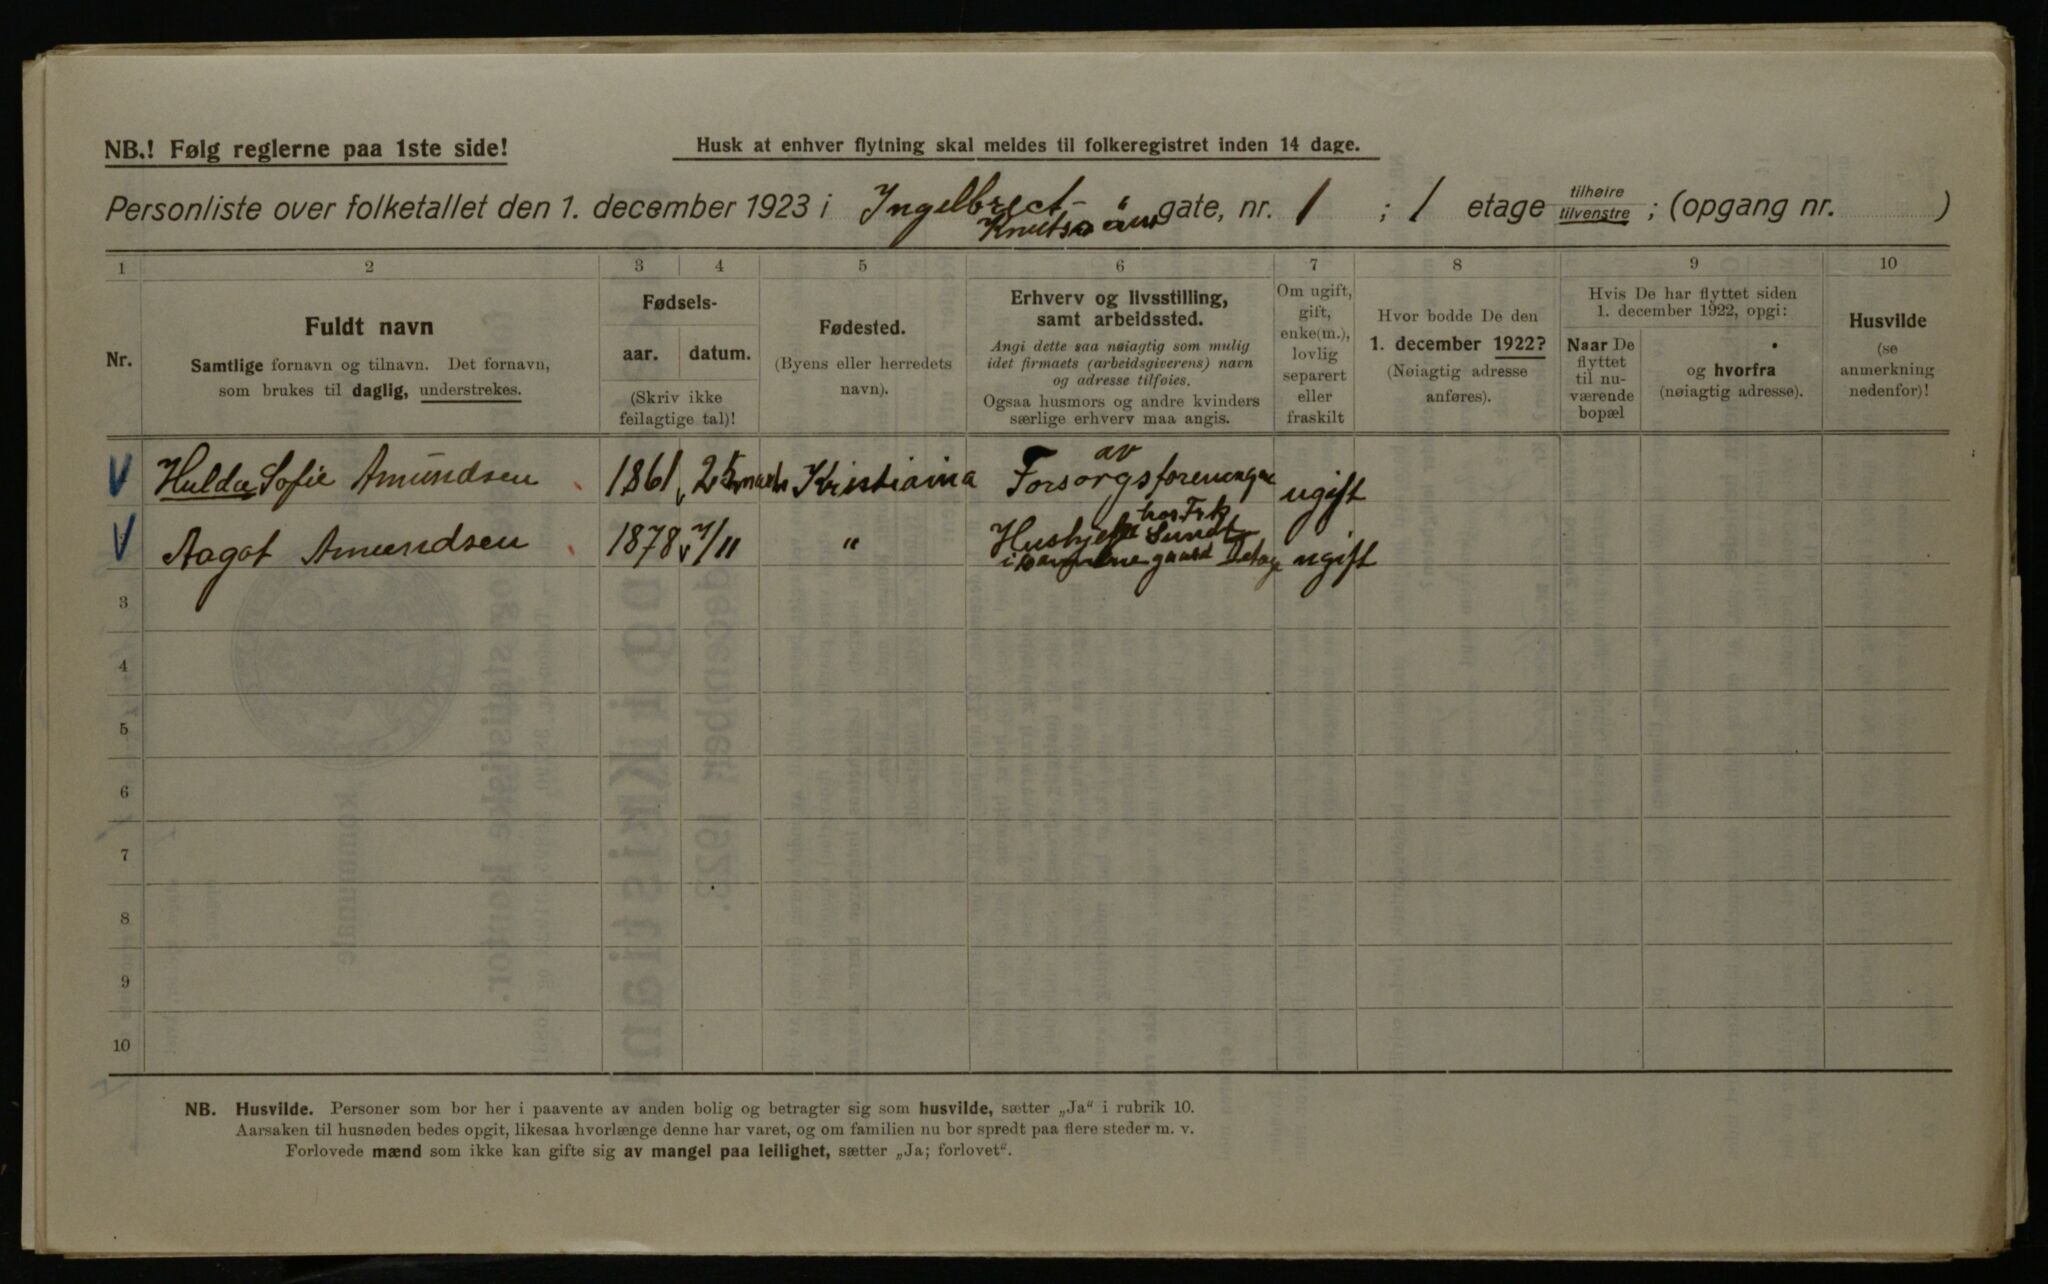 NB.! Følg reglerne paa 1ste side!
Husk at enhver flytning skal meldes til folkeregistret inden 14 dage.
Personliste over folketallet den 1. december 1923 i Ingelbrect- Knutsøns gate, nr. 1 ; 1 etage tilhøire tilvenstre ; (opgang nr. )
1 2 3 4 5 6 7 8 9 10
Nr.
Fuldt navn
Samtlige fornavn og tilnavn. Det fornavn,
som brukes til daglig, understrekes.
Fødsels-
aar. datum.
(Skriv ikke
feilagtige tal)!
Fødested.
(Byens eller herredets
navn).
Erhverv og livsstilling,
samt arbeidssted.
Angi dette saa nøiagtig som mulig
idet firmaets (arbeidsgiverens) navn
og adresse tilføies.
Ogsaa husmors og andre kvinders
særlige erhverv maa angis.
Om ugift,
gift,
enke(m.),
lovlig
separert
eller
fraskilt
Hvor bodde De den
1. december 1922?
(Nøiagtig adresse
anføres).
Hvis De har flyttet siden
1. december 1922, opgi:
Naar De
flyttet
til nu-
værende
bopæl
og hvorfra
(nøiagtig adresse).
Husvilde
(se
anmerkning
nedenfor)!
Hulda Sofie Amundsen 1861 25 marts Kristiania av Forsorgsforeningen ugift
Aagot Amundsen 1878 7/11 " Hushjelp hos Frk Sundt
i gaard ugift
3
4
5
6
7
8
9
10
NB. Husvilde. Personer som bor her i paavente av anden bolig og betragter sig som husvilde, sætter „Ja" i rubrik 10.
Aarsaken til husnøden bedes opgit, likesaa hvorlænge denne har varet, og om familien nu bor spredt paa flere steder m. v.
Forlovede mænd som ikke kan gifte sig av mangel paa leilighet, sætter „Ja; forlovet".